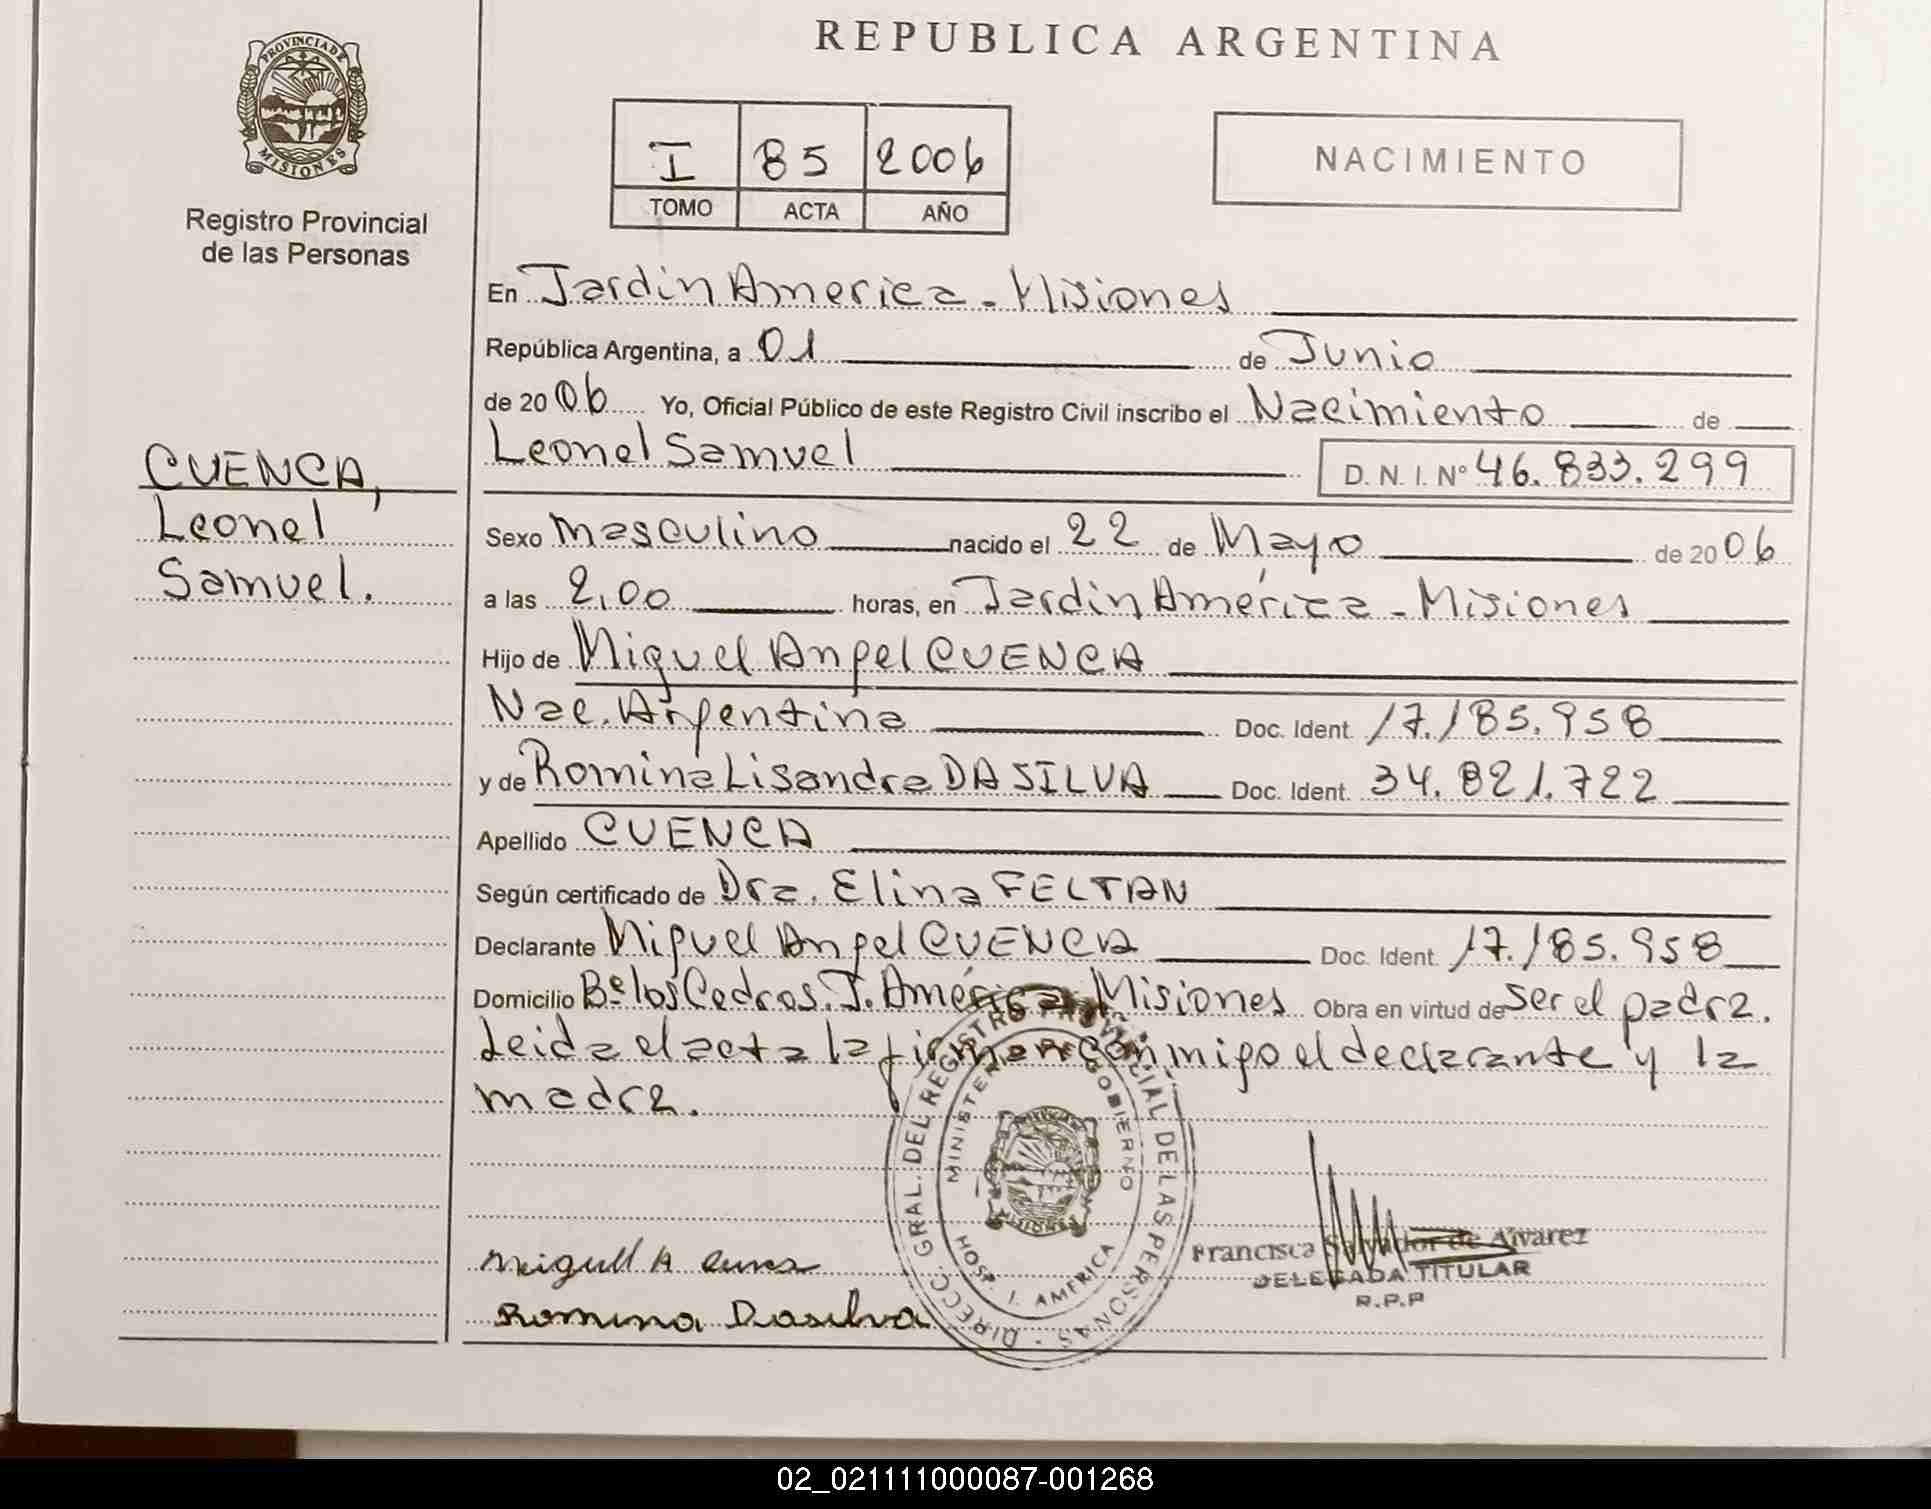 REPUBLICA ARGENTINA
PROVINCIA DE
MISIONES
Registro Provincial
de las Personas
I 85 2006
TOMO ACTA AÑO
NACIMIENTO
En Jardin America - Misiones
República Argentina, a 01 de Junio
de 2006 Yo, Oficial Público de este Registro Civil inscribo el Nacimiento de
Leonel Samuel D. N. I. Nº 46.833.299
CUENCA,
Leonel
Samuel.
Sexo Masculino nacido el 22 de Mayo de 2006
a las 2,00 horas, en Jardin América - Misiones
Hijo de Miguel Angel CUENCA
Nac. Argentina Doc. Ident. 17.185.958
y de Romina Lisandra DA SILVA Doc. Ident. 34.821.722
Apellido CUENCA
Según certificado de Dra. Elina FELTAN
Declarante Miguel Angel CUENCA Doc. Ident. 17.185.958
Domicilio Bº los Cedros. J. América Misiones Obra en virtud de ser el padre.
Leida el acta la firman conmigo el declarante y la
madre.
DIRECC. GRAL. DEL REGISTRO PROVINCIAL DE LAS PERSONAS
MINISTERIO DE GOBIERNO
MISIONES
HOSP. J. AMERICA
Miguel A cuenca
Romina Dasilva
Francisca Salvador de Alvarez
DELEGADA TITULAR
R.P.P
02_021111000087-001268